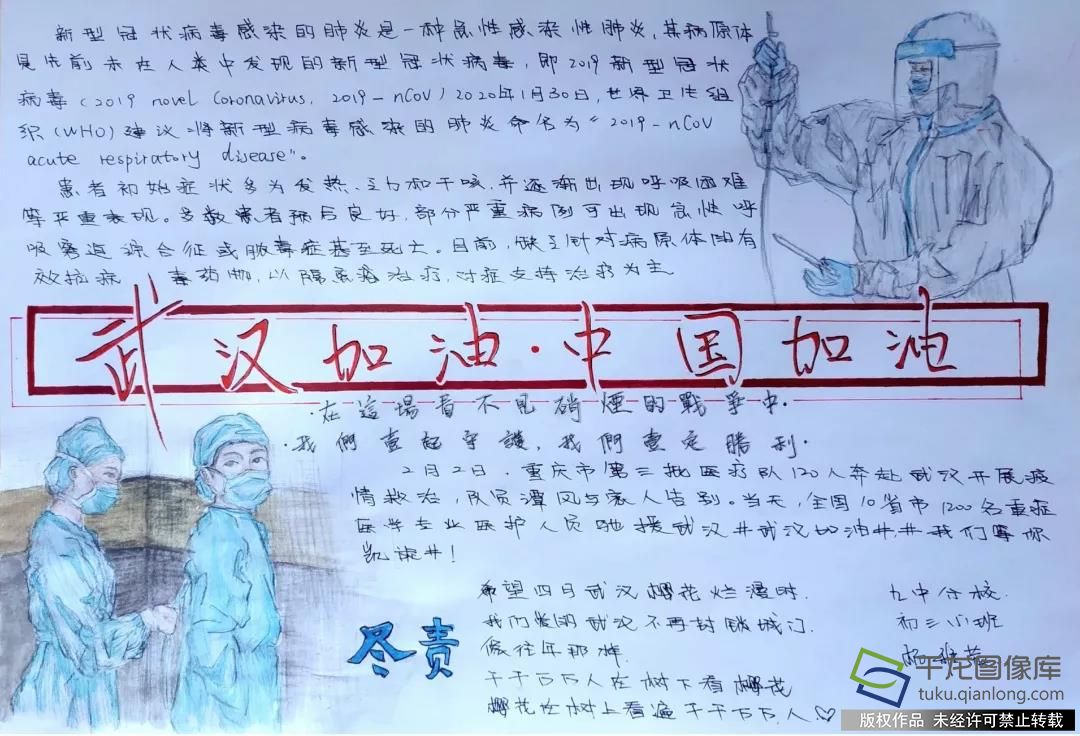 新型冠状病毒感染的肺炎是一种急性感染性肺炎，其病原体
是先前未在人类中发现的新型冠状病毒，即2019新型冠状
病毒（2019 novel Coronavirus, 2019-nCoV）2020年1月30日，世界卫生组
织（WHO）建议将新型病毒感染的肺炎命名为“2019-nCoV
acute respiratory disease”。
患者初始症状多为发热、乏力和干咳，并逐渐出现呼吸困难
等严重表现。多数患者预后良好，部分严重病例可出现急性呼
吸窘迫综合征或脓毒症甚至死亡。目前，缺乏针对病原体的有
效抗病毒药物，以隔离治疗，对症支持治疗为主
武汉加油·中国加油
·在這場看不見硝煙的戰爭中·
·我們一起守護，我們一定勝利·
2月2日，重庆市第三批医疗队120人奔赴武汉开展疫
情救治，队员潭风与家人告别。当天，全国10省市1200名重症
医学专业医护人员驰援武汉#武汉加油##我们等你
凯旋#！
尽责
希望四月武汉樱花烂漫时
我们的武汉不再封锁城门
像往年那样
千千万万人在树下看樱花
樱花在树上看遍千千万万人♡
九中分校
初三
班
千龙图像库
tuku.qianlong.com
版权作品 未经许可禁止转载